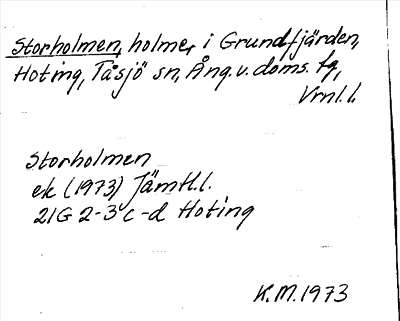 Storholmen, holme, i Grundfjärden,
Hoting, Tåsjö sn, Ång. v. doms. tg,
Vrnl. l.
Storholmen
ek (1973) Jämtl. l.
21G 2-3 c-d Hoting
K. M. 1973